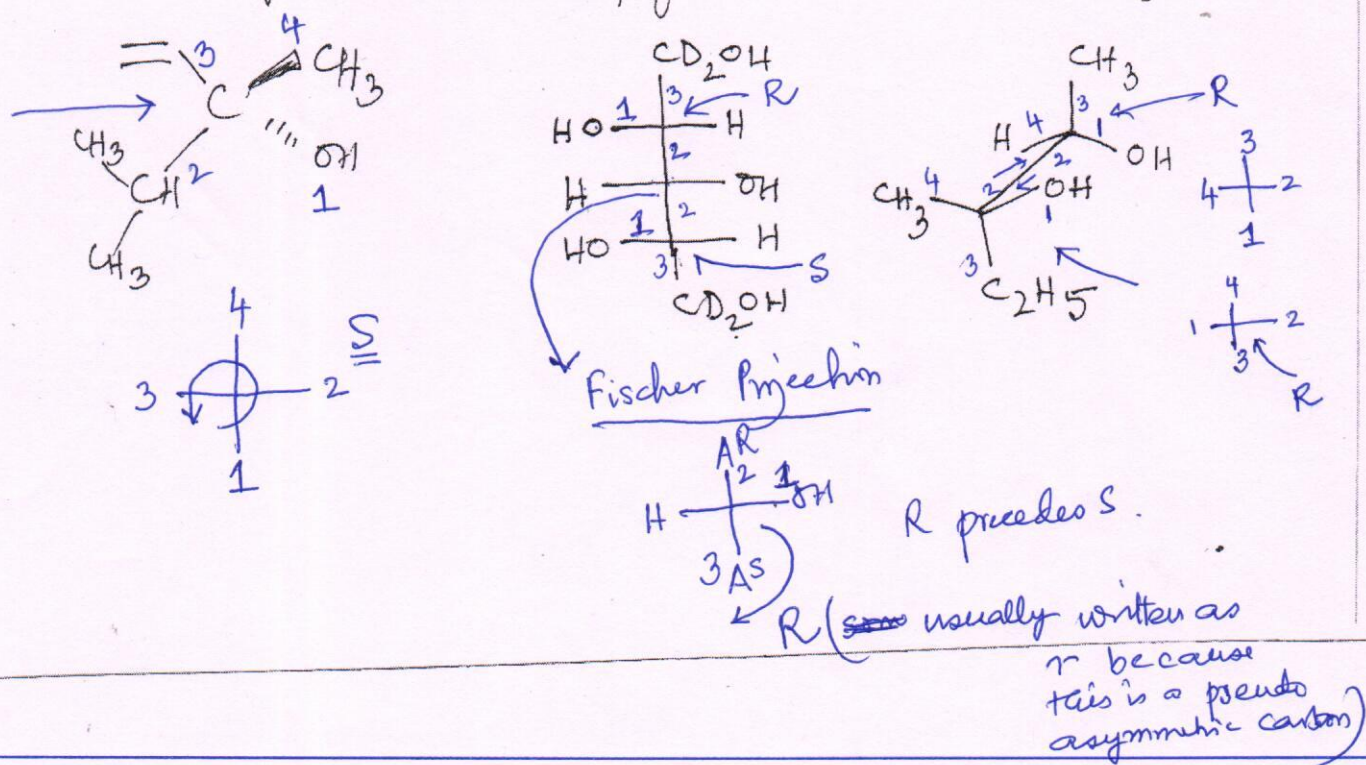 3 4
CH3
C
CH3
CH 2
OH
1
CH3
4
3 2
1
S
CD2OH
3 R
HO 1 H
2
H OH
2
HO 1 H
3 S
CD2OH
Fischer Projection
AR
2 1
H OH
3 AS
R precedes S.
R ( usually written as
r because
this is a pseudo
asymmetric carbon)
CH3
3
H 4 1 R
2 OH
CH3 4 2 OH
1
3
C2H5
3
4 2
1
4
1 2
3
R